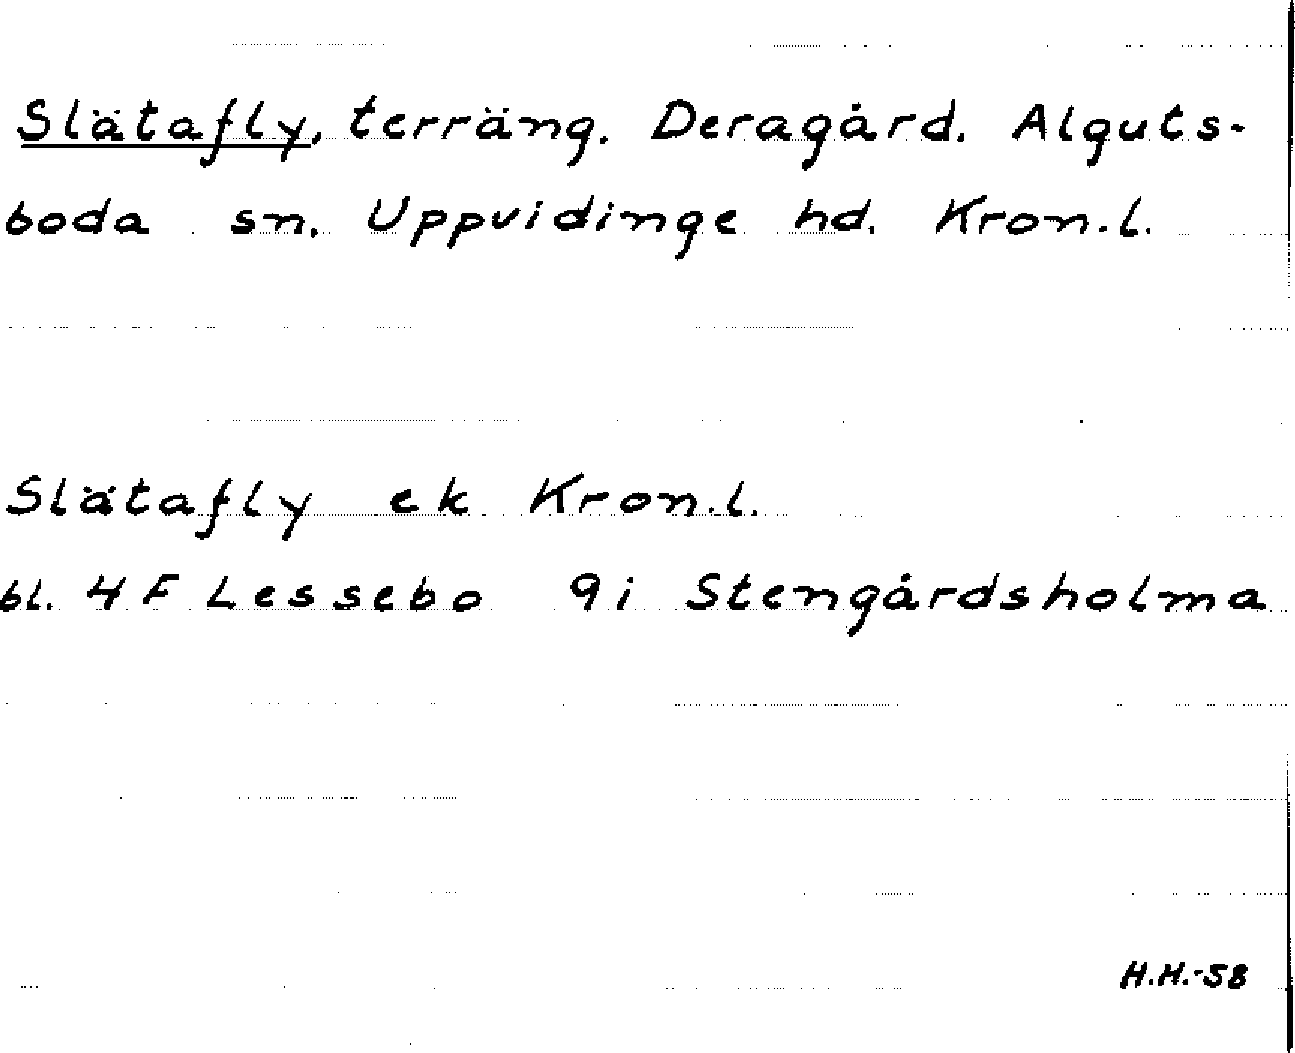 Slätafly, terräng. Deragård. Alguts-
boda sn. Uppvidinge hd. Kron.l.
Slätafly ek Kron.l.
bl. 4 F Lessebo 9i Stengårdsholma
H.H.-58